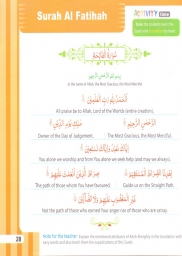 Surah Al Fatihah
ACTIVITY
سُورَةُ الْفَاتِحَةِ
بِسْمِ اللَّهِ الرَّحْمَٰنِ الرَّحِيمِ
In the name of Allah, the Most Gracious, the Most Merciful.
الْحَمْدُ لِلَّهِ رَبِّ الْعَالَمِينَ
All praise be to Allah, Lord of the Worlds (entire creation),
الرَّحْمَٰنِ الرَّحِيمِ مَالِكِ يَوْمِ الدِّينِ
Owner of the Day of Judgement. The Most Gracious, the Most Merciful.
إِيَّاكَ نَعْبُدُ وَإِيَّاكَ نَسْتَعِينُ
You alone we worship and from You alone we seek help (and may we always).
اهْدِنَا الصِّرَاطَ الْمُسْتَقِيمَ صِرَاطَ الَّذِينَ أَنْعَمْتَ عَلَيْهِمْ
The path of those whom You have favoured. Guide us on the Straight Path.
غَيْرِ الْمَغْضُوبِ عَلَيْهِمْ وَلَا الضَّالِّينَ
Not the path of those who earned Your anger nor of those who are astray.
28
Note for the teacher: